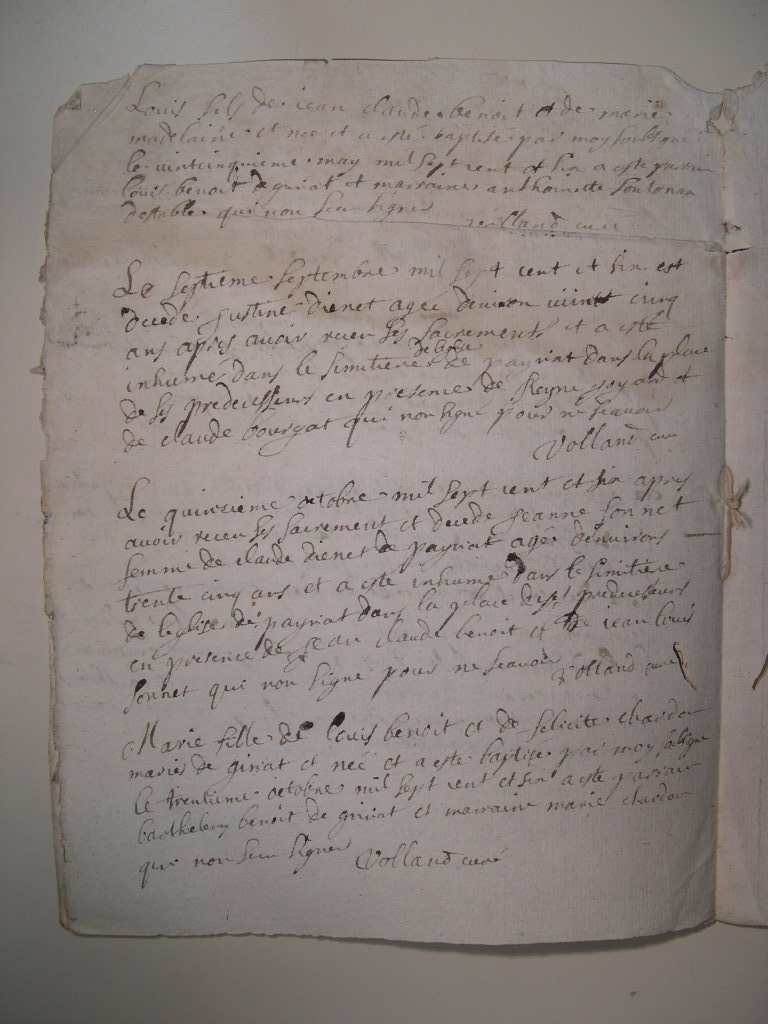 Louis fils de jean claude benoit et de marie
madelaine et née et a esté baptisé par moy soubsigné
le vintcinquieme may mil sept cent et six a esté parrin
louis benoit de giriat et marraine anthoinette
destables qui non sceu signer Volland curé
Le septieme septembre mil sept cent et six est
decede Justine dienet agee denviron vuint cinq
ans apres avoir receu ses sacrements et a esté
inhumé dans le simitiere de leglise de payriat dans la place
de ses predecesseurs en presence de Reyne joyard et
de claude bourgat qui non signé pour ne scavoir
Volland curé
Le quinzieme octobre mil sept cent et six apres
avoir receu ses sacrement et decede jeanne sonnet
femme de claude dienet de payriat agée denvirons
trente cinq ans et a esté inhumé dans le simitiere
de leglise de payriat dans la place de ses predecesseurs
en presence de jean claude benoit et de jean louis
sonnet qui non signé pour ne scavoir Volland curé
Marie fille de louis benoit et de felicité chardon
mariés de giriat et née et a esté baptisée par moy soubsigné
le trentieme octobre mil sept cent et six a esté parrain
barthelemy benoit de giriat et marraine marie chardon
qui non sceu signer Volland curé